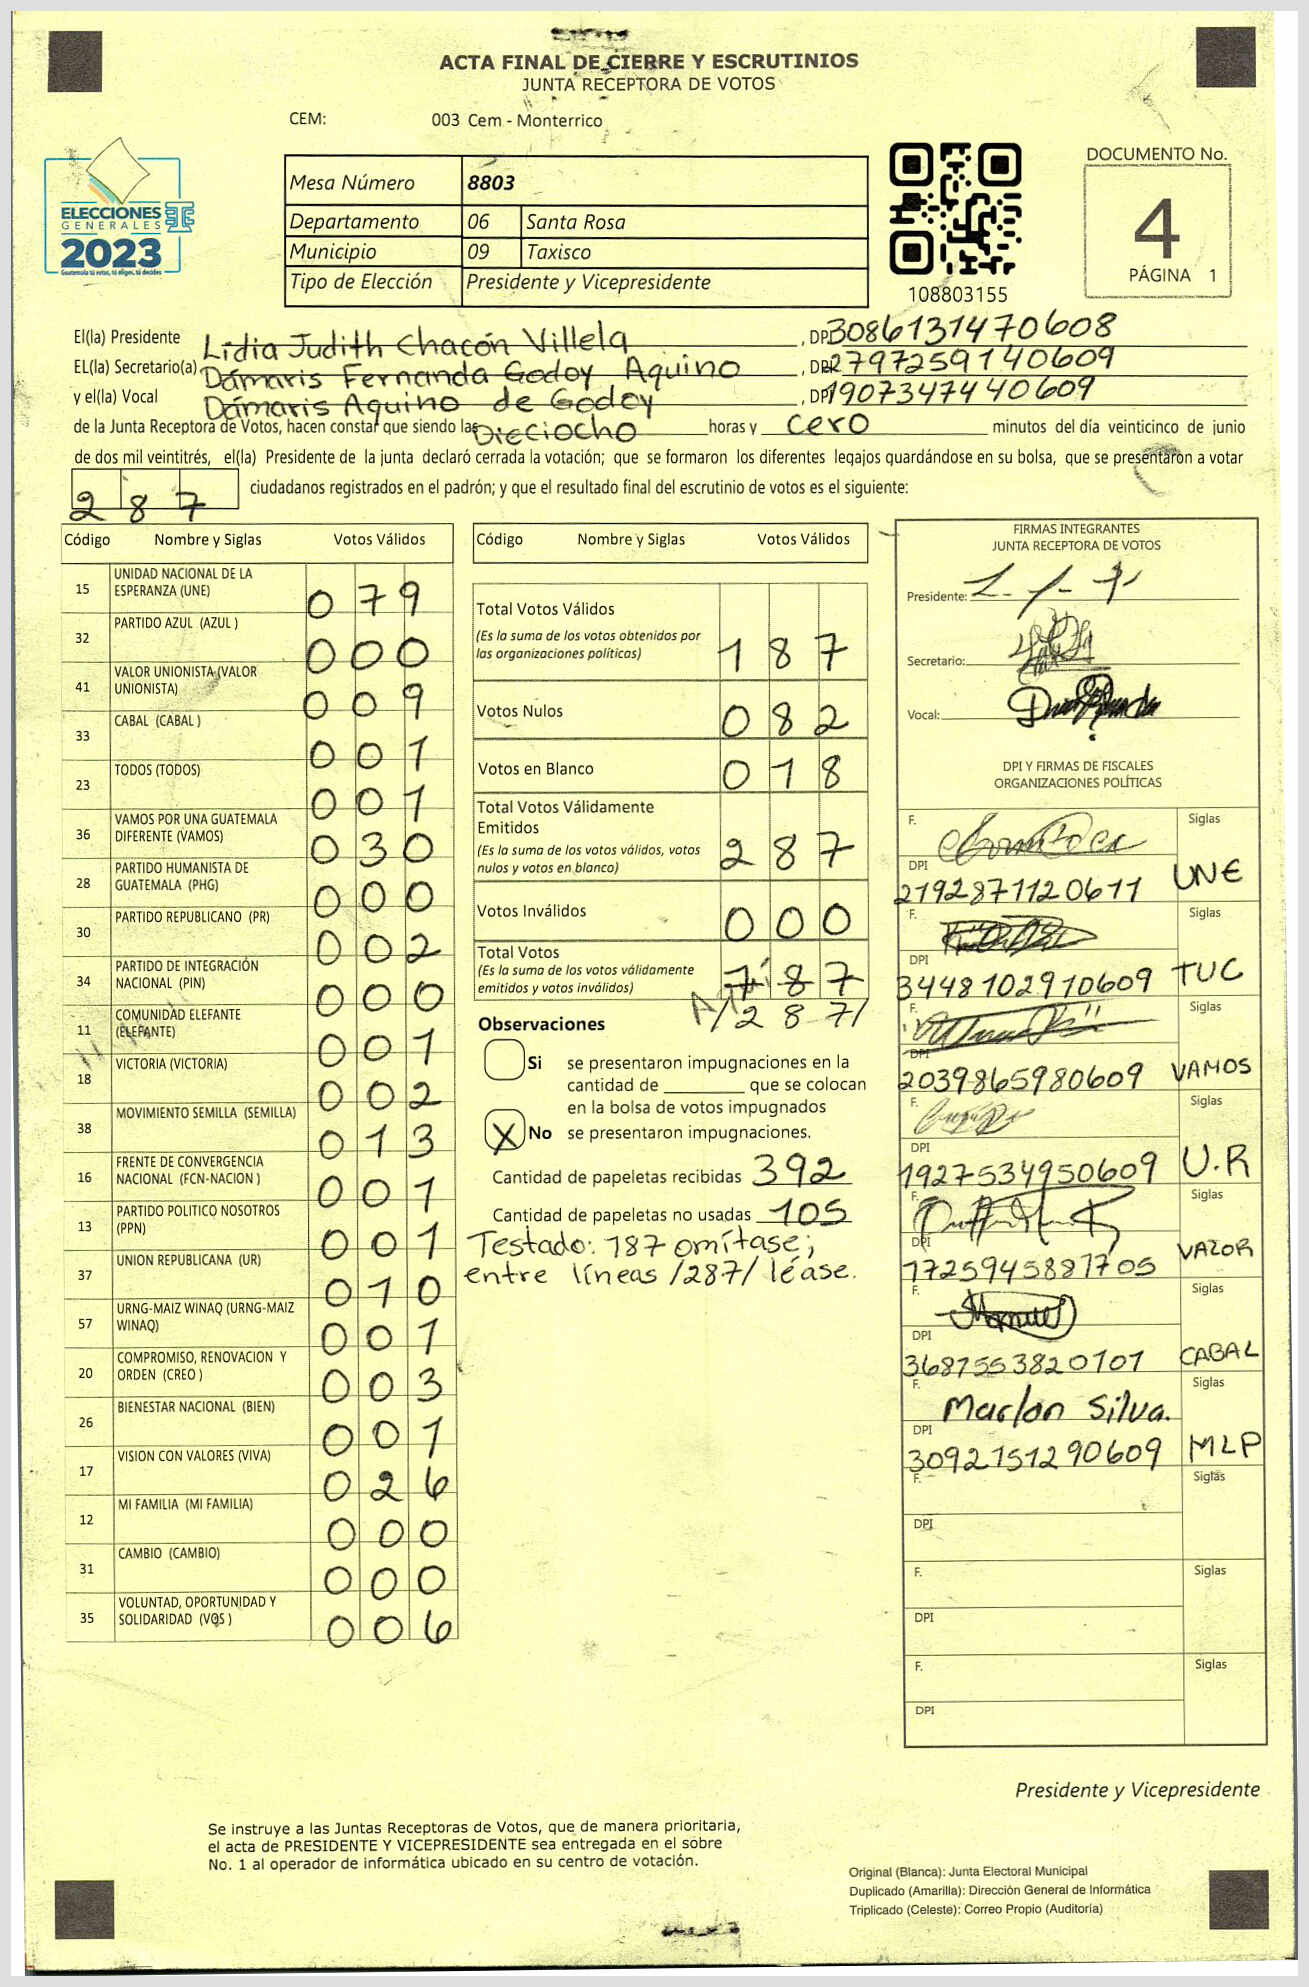 ACTA FINAL DE CIERRE Y ESCRUTINIOS
JUNTA RECEPTORA DE VOTOS
CEM: 003 Cem - Monterrico
ELECCIONES
GENERALES
2023
Guatemala tú votas, tú eliges, tú decides
Mesa Número 8803
Departamento 06 Santa Rosa
Municipio 09 Taxisco
Tipo de Elección Presidente y Vicepresidente
108803155
DOCUMENTO No.
4
PÁGINA 1
El(la) Presidente Lidia Judith Chacón Villela, DPI 3086131470608
EL(la) Secretario(a) Dámaris Fernanda Godoy Aquino, DPI 2797259140609
y el(la) Vocal Dámaris Aquino de Godoy, DPI 1907347440609
de la Junta Receptora de Votos, hacen constar que siendo las Dieciocho horas y cero minutos del día veinticinco de junio
de dos mil veintitrés, el(la) Presidente de la junta declaró cerrada la votación; que se formaron los diferentes legajos guardándose en su bolsa, que se presentaron a votar
287 ciudadanos registrados en el padrón; y que el resultado final del escrutinio de votos es el siguiente:
Código Nombre y Siglas Votos Válidos
15 UNIDAD NACIONAL DE LA ESPERANZA (UNE) 079
32 PARTIDO AZUL (AZUL ) 000
41 VALOR UNIONISTA (VALOR UNIONISTA) 009
33 CABAL (CABAL ) 001
23 TODOS (TODOS) 001
36 VAMOS POR UNA GUATEMALA DIFERENTE (VAMOS) 030
28 PARTIDO HUMANISTA DE GUATEMALA (PHG) 000
30 PARTIDO REPUBLICANO (PR) 002
34 PARTIDO DE INTEGRACIÓN NACIONAL (PIN) 000
11 COMUNIDAD ELEFANTE (ELEFANTE) 001
18 VICTORIA (VICTORIA) 002
38 MOVIMIENTO SEMILLA (SEMILLA) 013
16 FRENTE DE CONVERGENCIA NACIONAL (FCN-NACION ) 001
13 PARTIDO POLITICO NOSOTROS (PPN) 001
37 UNION REPUBLICANA (UR) 010
57 URNG-MAIZ WINAQ (URNG-MAIZ WINAQ) 001
20 COMPROMISO, RENOVACION Y ORDEN (CREO ) 003
26 BIENESTAR NACIONAL (BIEN) 001
17 VISION CON VALORES (VIVA) 026
12 MI FAMILIA (MI FAMILIA) 000
31 CAMBIO (CAMBIO) 000
35 VOLUNTAD, OPORTUNIDAD Y SOLIDARIDAD (VOS ) 006
Código Nombre y Siglas Votos Válidos
Total Votos Válidos
(Es la suma de los votos obtenidos por las organizaciones políticas) 187
Votos Nulos 082
Votos en Blanco 018
Total Votos Válidamente Emitidos
(Es la suma de los votos válidos, votos nulos y votos en blanco) 287
Votos Inválidos 000
Total Votos
(Es la suma de los votos válidamente emitidos y votos inválidos) 187
/287/
Observaciones
Si se presentaron impugnaciones en la
cantidad de ________ que se colocan
en la bolsa de votos impugnados
X No se presentaron impugnaciones.
Cantidad de papeletas recibidas 392
Cantidad de papeletas no usadas 105
Testado: 187 omítase;
entre líneas /287/ léase.
FIRMAS INTEGRANTES
JUNTA RECEPTORA DE VOTOS
Presidente:
Secretario:
Vocal:
DPI Y FIRMAS DE FISCALES
ORGANIZACIONES POLÍTICAS
F. Siglas
DPI 2192871120611 UNE
F. Siglas
DPI 3448102910609 TUC
F. Siglas
DPI 2039865980609 VAMOS
F. Siglas
DPI 1927534950609 U.R
F. Siglas
DPI 1725945881705 VALOR
F. Siglas
DPI 3687553820101 CABAL
F. Marlon Silva. Siglas
DPI 3092151290609 MLP
F. Siglas
DPI
F. Siglas
DPI
F. Siglas
DPI
Presidente y Vicepresidente
Se instruye a las Juntas Receptoras de Votos, que de manera prioritaria,
el acta de PRESIDENTE Y VICEPRESIDENTE sea entregada en el sobre
No. 1 al operador de informática ubicado en su centro de votación.
Original (Blanca): Junta Electoral Municipal
Duplicado (Amarilla): Dirección General de Informática
Triplicado (Celeste): Correo Propio (Auditoría)